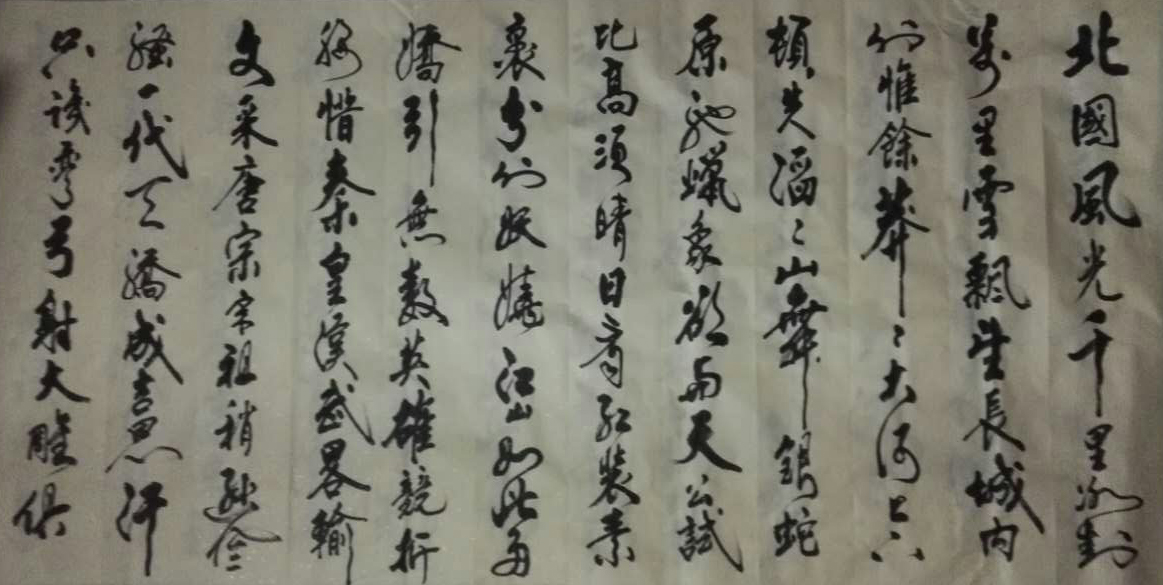 北國風光千里冰封
萬里雪飄望長城内
外惟餘莽々大河上下
頓失滔々山舞銀蛇
原馳蠟象欲與天公試
比高須晴日看紅裝素
裹分外妖嬈江山如此多
嬌引無數英雄競折
腰惜秦皇漢武畧輸
文采唐宗宋祖稍遜
騷一代天驕成吉思汗
只識彎弓射大雕俱